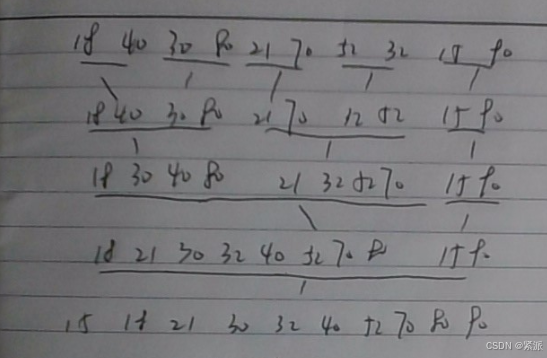 18 40 30 80 21 70 52 32 15 90
18 40 30 80 21 70 32 52 15 90
18 30 40 80 21 32 52 70 15 90
18 21 30 32 40 52 70 80 15 90
15 18 21 30 32 40 52 70 80 90
CSDN @紧派